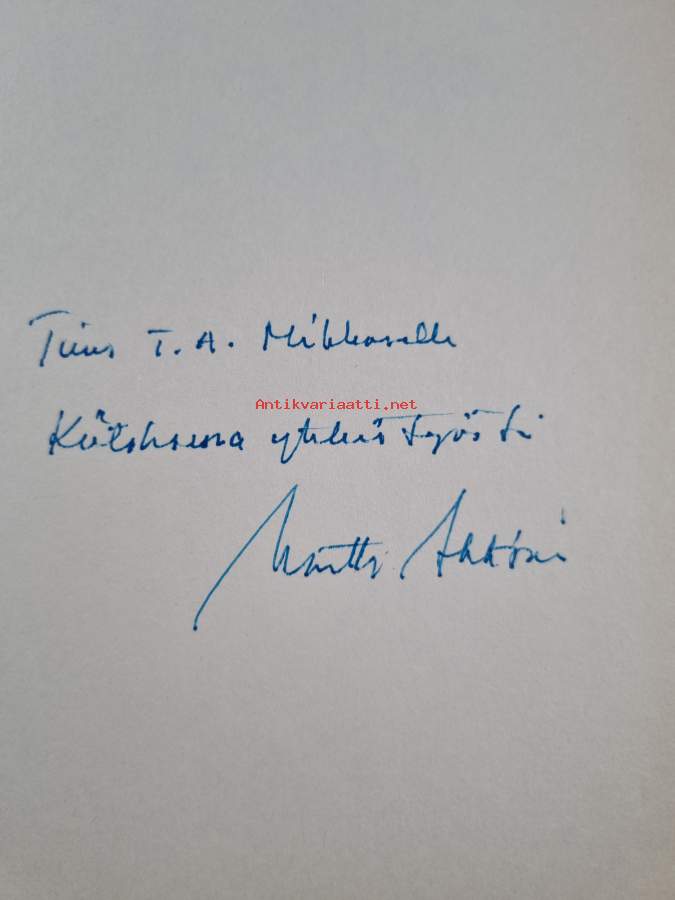 T. A. Mikkoselle
Antikvariaatti.net
Kiitoksena yhteistyöstä
Martti